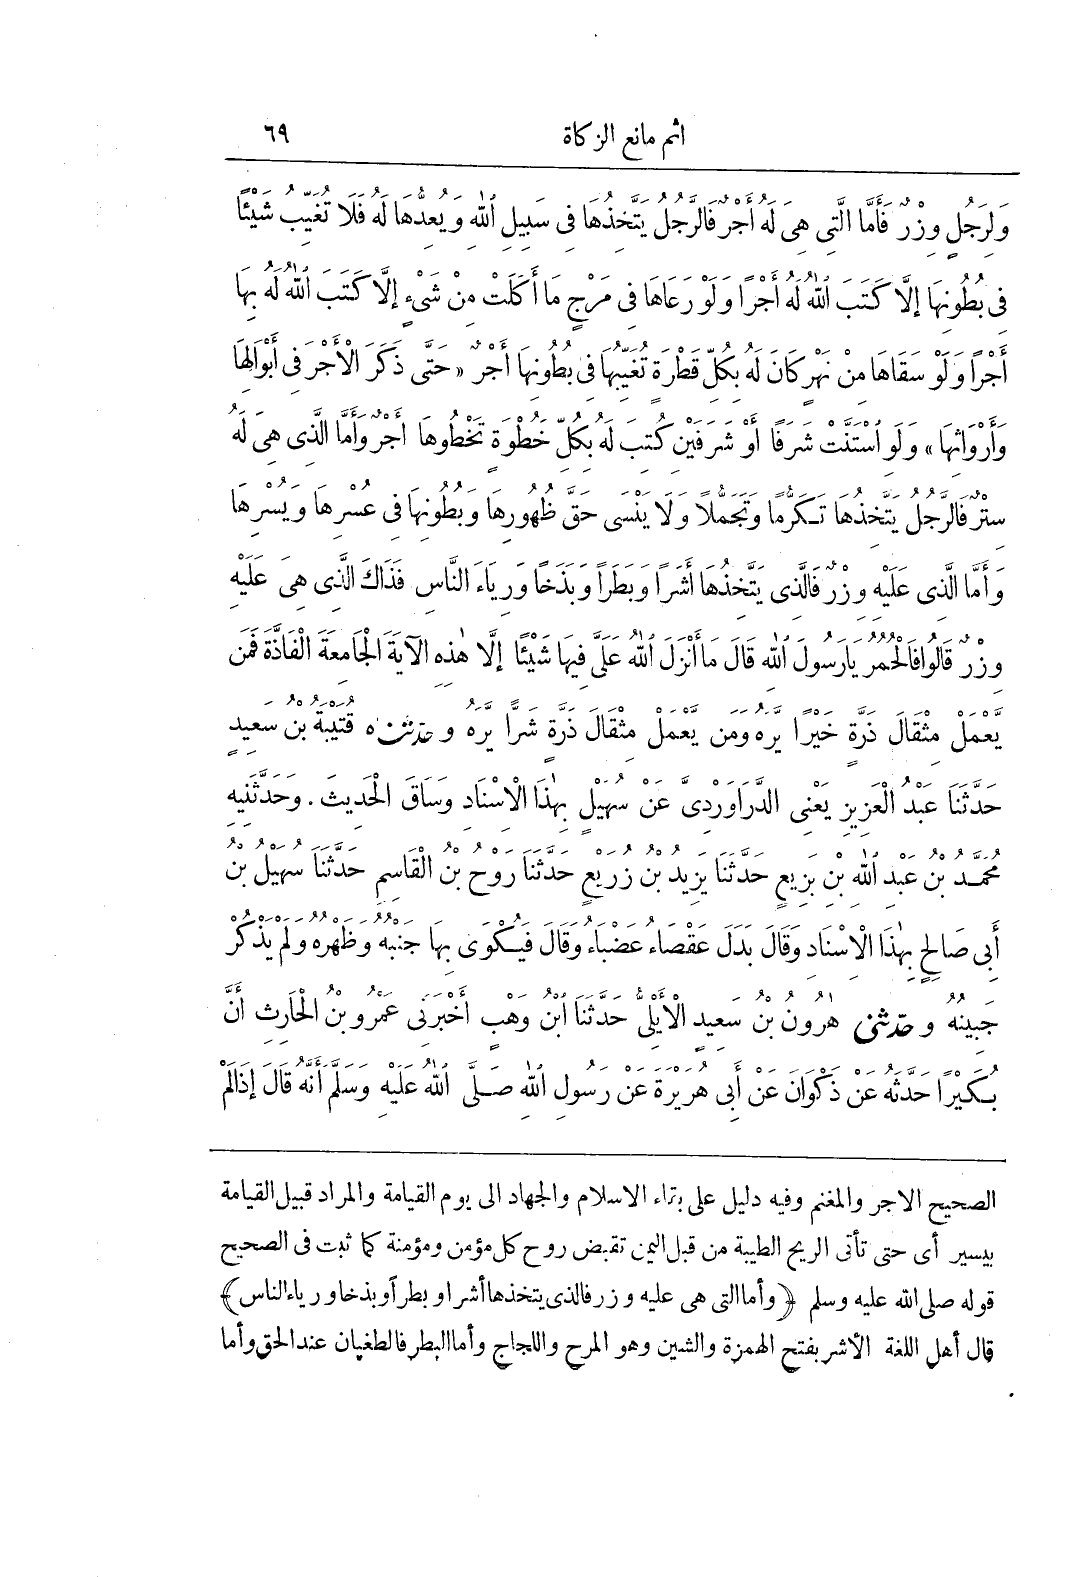 اثم مانع الزكاة ٦٩
وَلِرَجُلٍ وِزْرٌ فَأَمَّا الَّتِى هِىَ لَهُ أَجْرٌ فَالرَّجُلُ يَتَّخِذُهَا فِى سَبِيلِ اللهِ وَيُعِدُّهَا لَهُ فَلَا تُغَيِّبُ شَيْئًا
فِى بُطُونِهَا إِلَّا كَتَبَ اللهُ لَهُ أَجْرًا وَلَوْ رَعَاهَا فِى مَرْجٍ مَا أَكَلَتْ مِنْ شَىْءٍ إِلَّا كَتَبَ اللهُ لَهُ بِهَا
أَجْرًا وَلَوْ سَقَاهَا مِنْ نَهْرٍ كَانَ لَهُ بِكُلِّ قَطْرَةٍ تُغَيِّبُهَا فِى بُطُونِهَا أَجْرٌ «حَتَّى ذَكَرَ الْأَجْرَ فِى أَبْوَالِهَا
وَأَرْوَاثِهَا» وَلَوِ اسْتَنَّتْ شَرَفًا أَوْ شَرَفَيْنِ كُتِبَ لَهُ بِكُلِّ خُطْوَةٍ تَخْطُوهَا أَجْرٌ وَأَمَّا الَّذِى هِىَ لَهُ
سِتْرٌ فَالرَّجُلُ يَتَّخِذُهَا تَكَرُّمًا وَتَجَمُّلًا وَلَا يَنْسَى حَقَّ ظُهُورِهَا وَبُطُونِهَا فِى عُسْرِهَا وَيُسْرِهَا
وَأَمَّا الَّذِى عَلَيْهِ وِزْرٌ فَالَّذِى يَتَّخِذُهَا أَشَرًا وَبَطَرًا وَبَذَخًا وَرِيَاءَ النَّاسِ فَذَاكَ الَّذِى هِىَ عَلَيْهِ
وِزْرٌ قَالُوا فَالْحُمُرُ يَارَسُولَ اللهِ قَالَ مَا أَنْزَلَ اللهُ عَلَىَّ فِيهَا شَيْئًا إِلَّا هٰذِهِ الْآيَةَ الْجَامِعَةَ الْفَاذَّةَ فَمَنْ
يَعْمَلْ مِثْقَالَ ذَرَّةٍ خَيْرًا يَرَهُ وَمَنْ يَعْمَلْ مِثْقَالَ ذَرَّةٍ شَرًّا يَرَهُ و حدثناه قُتَيْبَةُ بْنُ سَعِيدٍ
حَدَّثَنَا عَبْدُ الْعَزِيزِ يَعْنِى الدَّرَاوَرْدِىَّ عَنْ سُهَيْلٍ بِهٰذَا الْإِسْنَادِ وَسَاقَ الْحَدِيثَ . وَحَدَّثَنِيهِ
مُحَمَّدُ بْنُ عَبْدِ اللهِ بْنِ بَزِيعٍ حَدَّثَنَا يَزِيدُ بْنُ زُرَيْعٍ حَدَّثَنَا رَوْحُ بْنُ الْقَاسِمِ حَدَّثَنَا سُهَيْلُ بْنُ
أَبِى صَالِحٍ بِهٰذَا الْإِسْنَادِ وَقَالَ بَدَلَ عَقْصَاءُ عَضْبَاءُ وَقَالَ فَيُكْوَى بِهَا جَنْبُهُ وَظَهْرُهُ وَلَمْ يَذْكُرْ
جَبِينُهُ و حدثنى هٰرُونُ بْنُ سَعِيدٍ الْأَيْلِىُّ حَدَّثَنَا ابْنُ وَهْبٍ أَخْبَرَنِى عَمْرُو بْنُ الْحَارِثِ أَنَّ
بُكَيْرًا حَدَّثَهُ عَنْ ذَكْوَانَ عَنْ أَبِى هُرَيْرَةَ عَنْ رَسُولِ اللهِ صَلَّى اللهُ عَلَيْهِ وَسَلَّمَ أَنَّهُ قَالَ إِذَا لَمْ
الصحيح الاجر والمغنم وفيه دليل على بقاء الاسلام والجهاد الى يوم القيامة والمراد قبيل القيامة
بيسير أى حتى تأتى الريح الطيبة من قبل اليمن تقبض روح كل مؤمن ومؤمنة كما ثبت فى الصحيح
قوله صلى الله عليه وسلم ﴿وأما التى هى عليه وزر فالذى يتخذها أشرا وبطرا وبذخا ورياء الناس﴾
قال أهل اللغة الأشر بفتح الهمزة والشين وهو المرح واللجاج وأما البطر فالطغيان عند الحق وأما